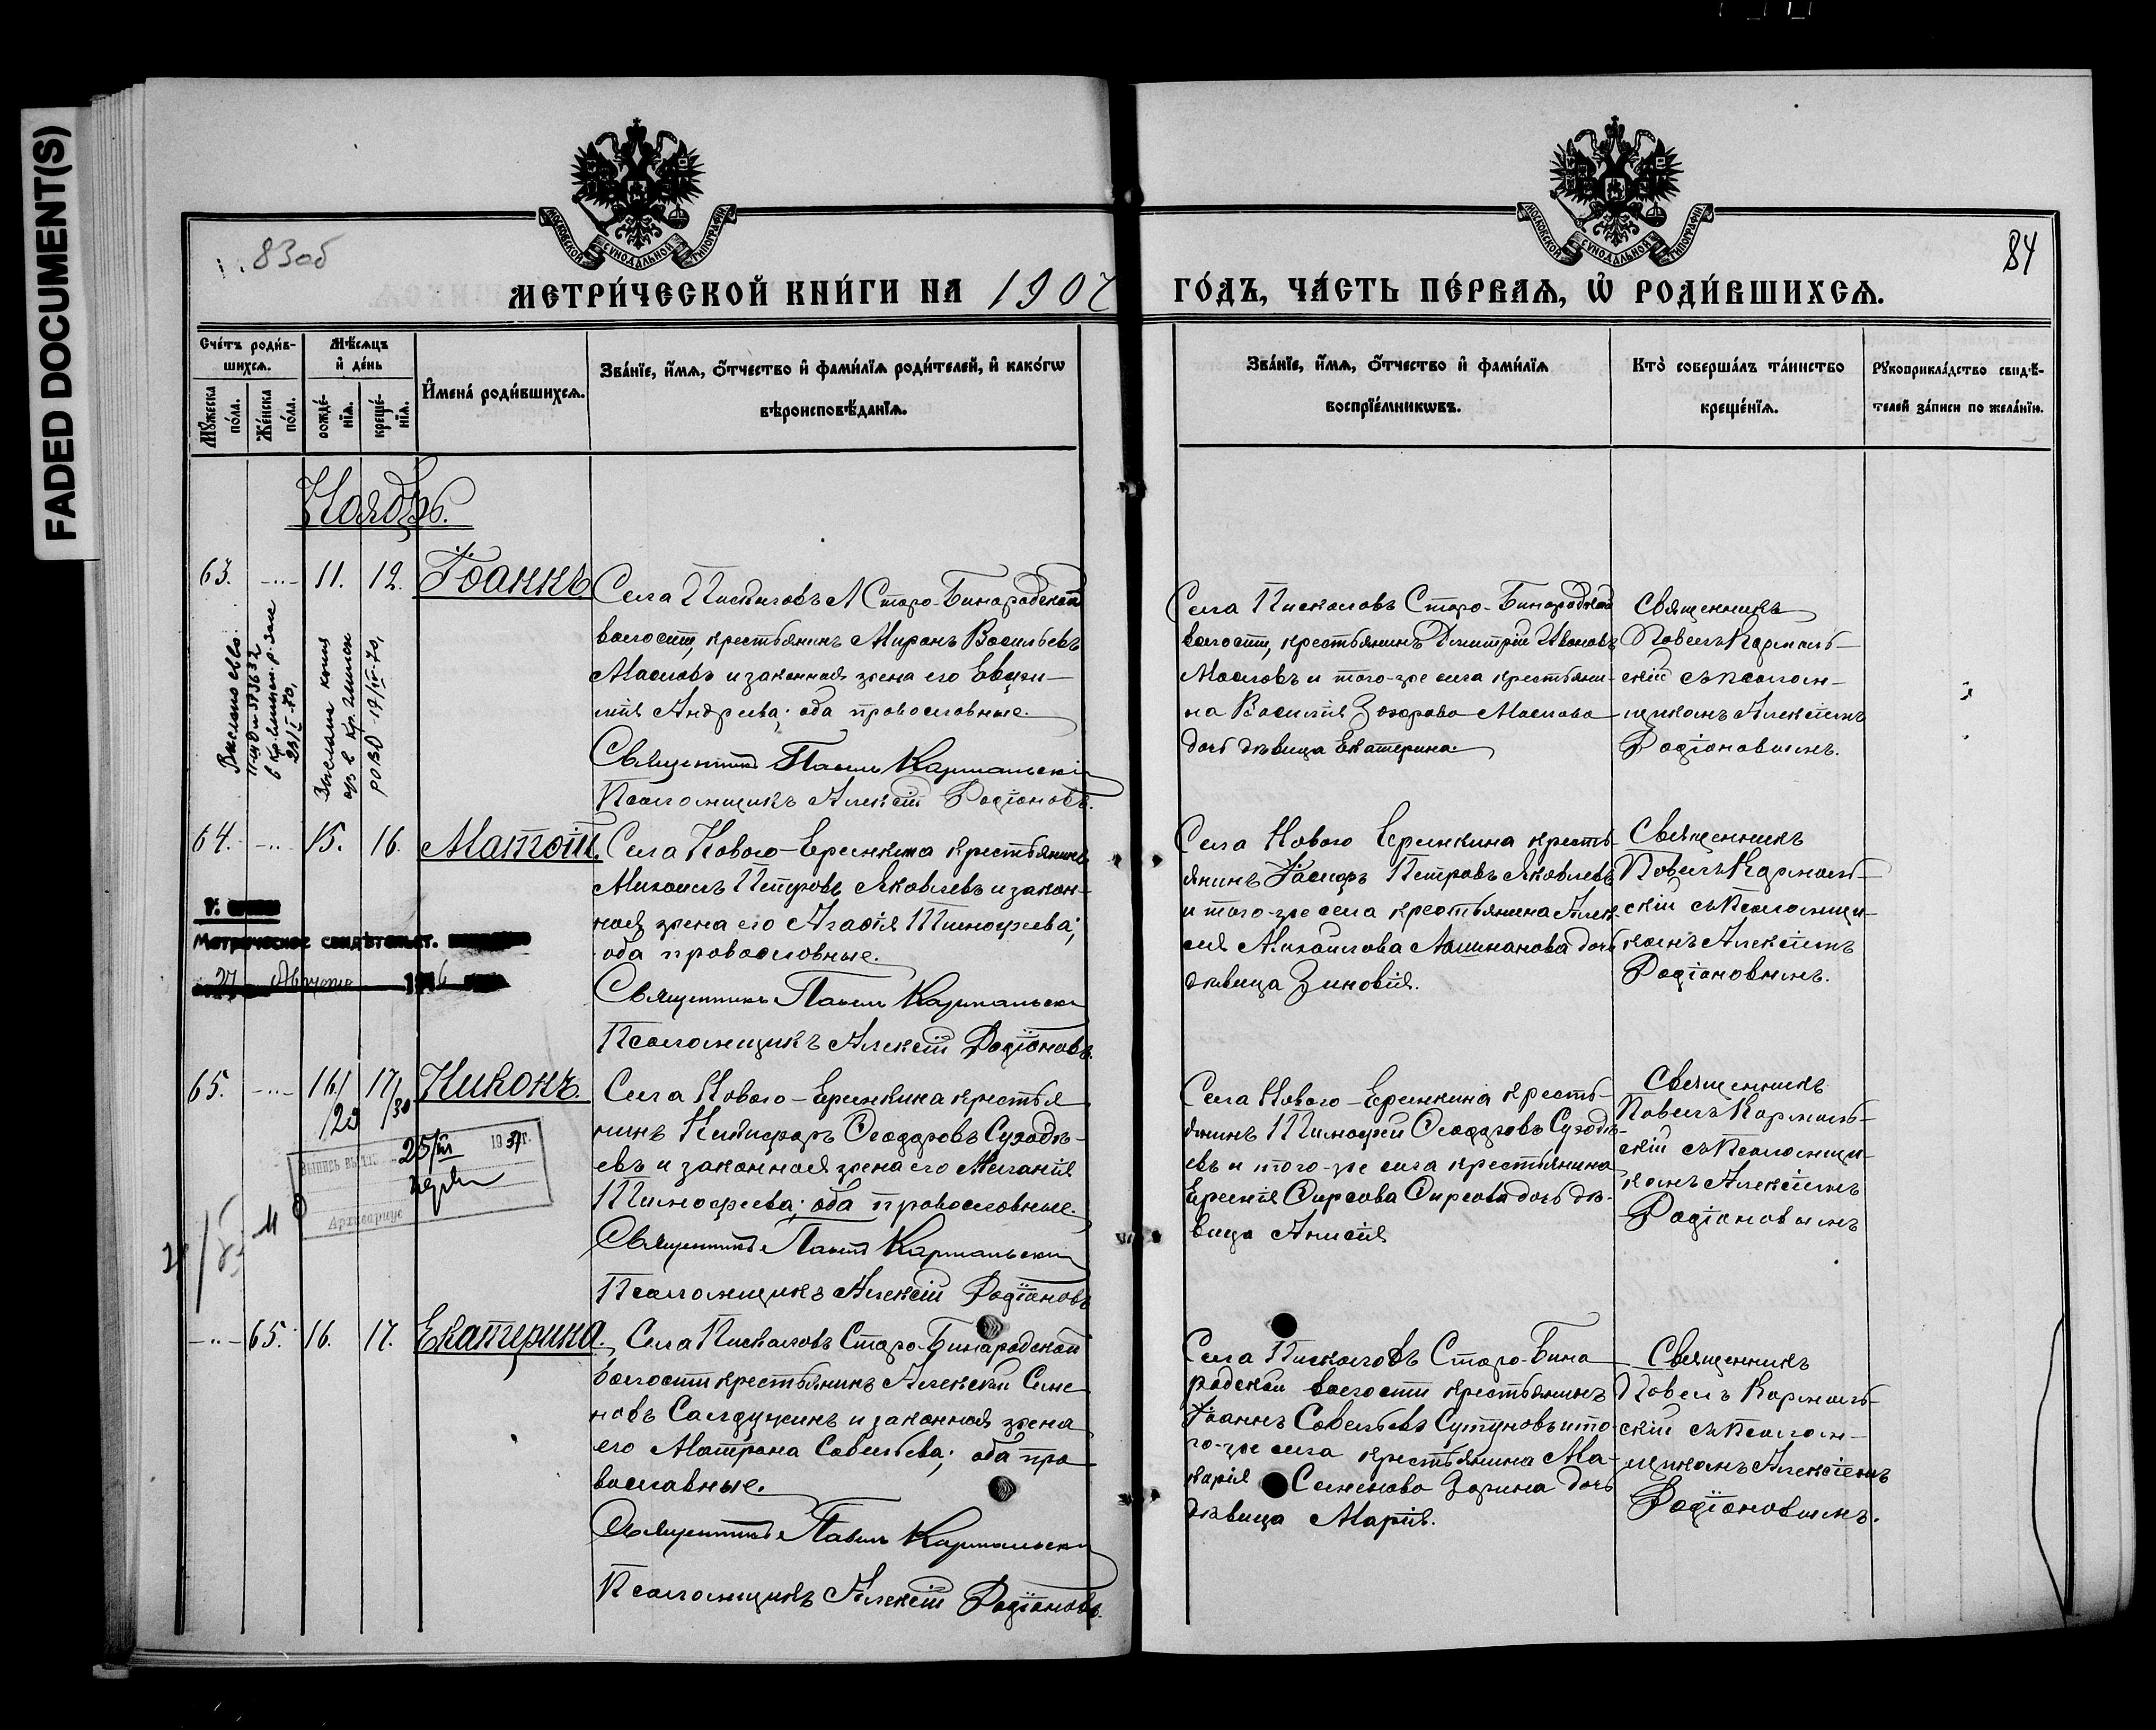 FADED DOCUMENT(S)
83об
84
МОСКОВСКОЙ СѴНОДАЛЬНОЙ ТИПОГРАФІИ
МОСКОВСКОЙ СѴНОДАЛЬНОЙ ТИПОГРАФІИ
МЕТРИ́ЧЕСКОЙ КНИ́ГИ НА 1907
ГО́ДЪ, ЧА́СТЬ ПЕ́РВАѦ, Ѡ҆ РОДИ́ВШИХСѦ.
Сче́тъ роди́в-
шихсѧ.
Мꙋ́жеска
по́ла.
Же́нска
по́ла.
Мѣ́сѧцъ
и҆ де́нь
рожде́-
нїѧ.
креще́-
нїѧ.
И҆мена̀ роди́вшихсѧ.
Зва́нїе, и҆́мѧ, ѻ҆́тчество и҆ фами́лїѧ роди́телей, и҆ како́гѡ
вѣроисповѣ́данїѧ.
Зва́нїе, и҆́мѧ, ѻ҆́тчество и҆ фами́лїѧ
воспрїе́мникѡвъ.
Кто̀ соверша́лъ та́инство
креще́нїѧ.
Рꙋкоприкла́дство свидѣ́-
телей за́писи по жела́нїю.
Ноябрь.
63. -"- 11. 12. Іоаннъ
Села Пискаловъ Старо-Бинарадской
волости, крестьянинъ Миронъ Васильевъ
Масловъ и законная жена его Евѳи-
мія Андреева; оба православные.
Священникъ Павелъ Кармальскій
Псаломщикъ Алексій Родіоновъ.
Села Пискаловъ Старо-Бинарадской
волости, крестьянинъ Димитрій Ивановъ
Масловъ и того-же села крестьяни-
на Василія Захарова Маслова
дочь дѣвица Екатерина.
Священникъ
Павелъ Кармаль-
скій съ псалом-
щикомъ Алексіемъ
Родіоновымъ.
Выслано св-во
Выслана копия
64. -"- 15. 16. Матѳій.
Села Новаго-Еремкина крестьянинъ
Михаилъ Петровъ Яковлевъ и закон-
ная жена его Агаѳія Тимоѳеева;
оба православные.
Священникъ Павелъ Кармальскій
Псаломщикъ Алексій Родіоновъ.
Села Новаго Еремкина кресть-
янинъ Іасонъ Петровъ Яковлевъ
и того-же села крестьянина Алек-
сія Михаилова Лашманова дочь
дѣвица Зиновія.
Священникъ
Павелъ Кармаль-
скій съ Псаломщи-
комъ Алексіемъ
Родіоновымъ.
Метрическое свидѣтельст.
27 Августа 1916
65. -"- 16/29 17/30 Никонъ.
Села Новаго-Еремкина крестья-
нинъ Никифоръ Ѳеодоровъ Суходѣ-
евъ и законная жена его Меланія
Тимоѳеева; оба православные.
Священникъ Павелъ Кармальскій
Псаломщикъ Алексій Родіоновъ
Села Новаго-Еремкина кресть-
янинъ Тимоѳей Ѳеодоровъ Суходѣ-
евъ и того-же села крестьянина
Еремія Ѳирсова Ѳирсова дочь дѣ-
вица Анисія
Священникъ
Павелъ Кармаль-
скій съ Псаломщи-
комъ Алексіемъ
Родіоновымъ
Выпись выдана 25/III 1937г.
Архивариус
-"- 65. 16. 17. Екатерина.
Села Пискаловъ Старо-Бинарадской
волости крестьянинъ Алексѣй Симе-
новъ Салдужинъ и законная жена
его Матрона Савельева; оба пра-
вославные.
Священникъ Павелъ Кармальскій
Псаломщикъ Алексій Родіоновъ.
Села Пискаловъ Старо-Бина
радской волости крестьянинъ
Іоаннъ Савельевъ Сутуновъ и то-
го-же села крестьянина Ма-
карія Семенова Зорина дочь
дѣвица Марія.
Священникъ
Павелъ Кармаль-
скій съ Псалом-
щикомъ Алексіемъ
Родіоновымъ.